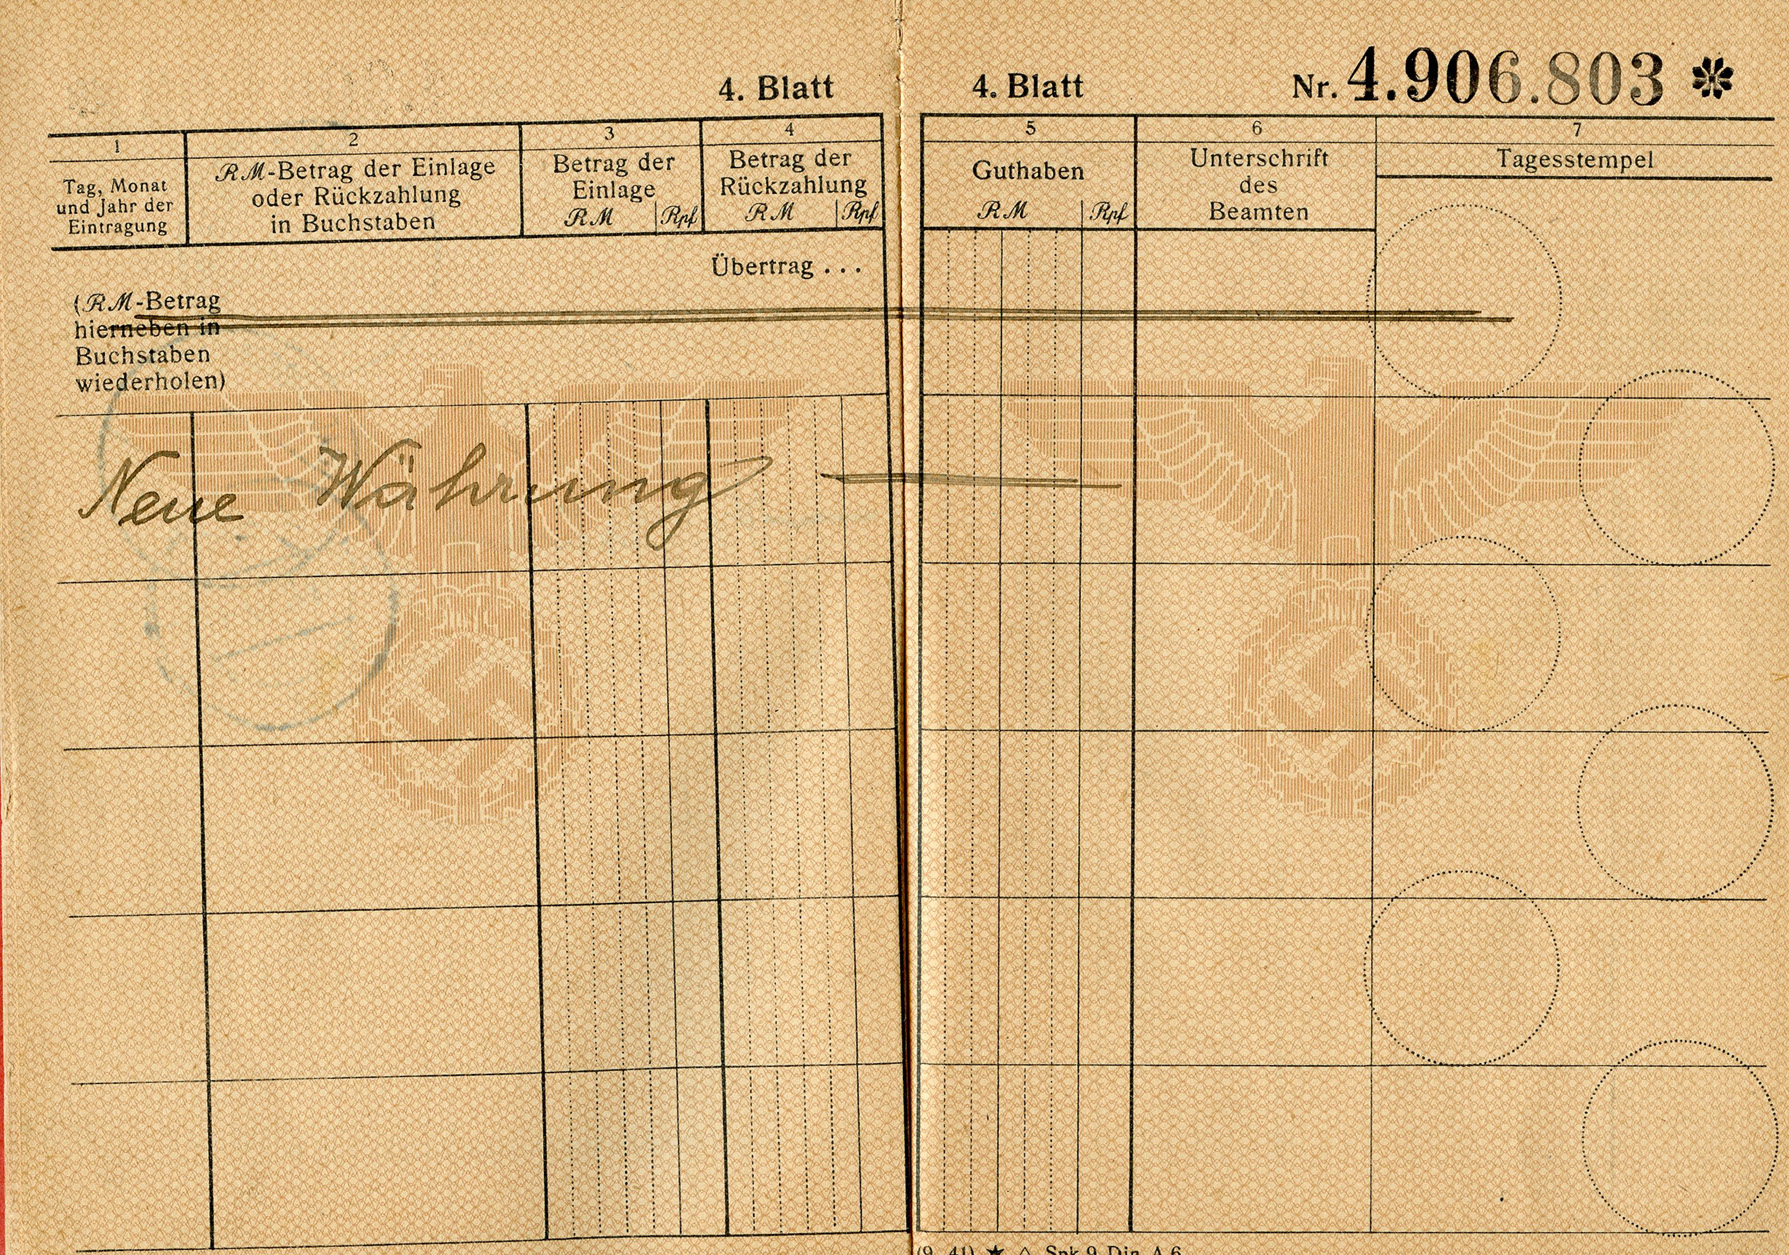 4. Blatt
1
Tag, Monat
und Jahr der
Eintragung
2
RM-Betrag der Einlage
oder Rückzahlung
in Buchstaben
3
Betrag der
Einlage
RM Rpf
4
Betrag der
Rückzahlung
RM Rpf
Übertrag . . .
(RM-Betrag
hierneben in
Buchstaben
wiederholen)
Neue Währung
4. Blatt
Nr. 4.906.803 *
5
Guthaben
RM Rpf
6
Unterschrift
des
Beamten
7
Tagesstempel
(9. 41) ★ △ Spk 9 Din A 6